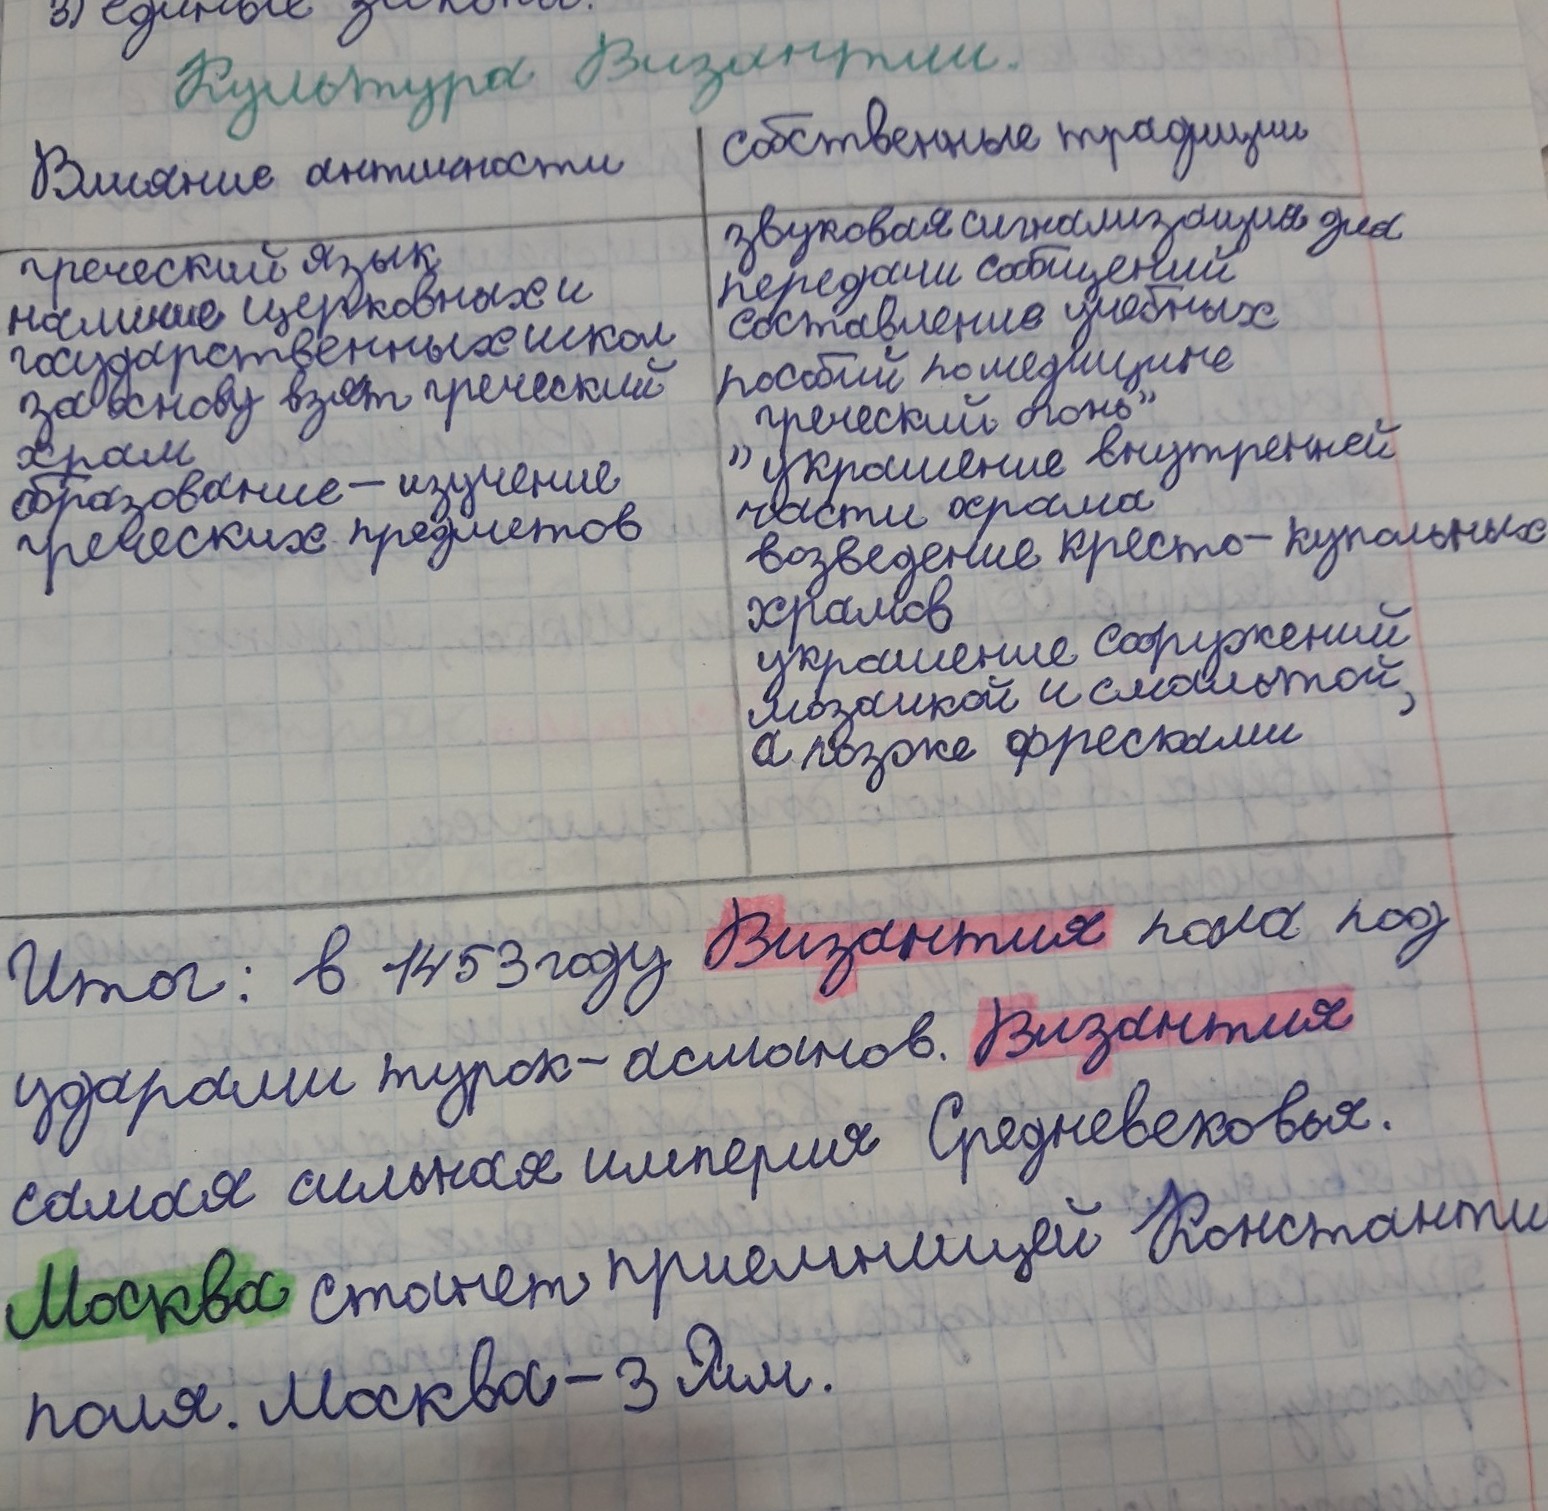 3) единые законы.
Культура Византии.
Влияние античности
собственные традиции
греческий язык
наличие церковных и
государственных школ
за основу взят греческий
храм
образование – изучение
греческих предметов
звуковая сигнализация для
передачи сообщений
составление учебных
пособий по медицине
греческий огонь"
"украшение внутренней
части храма
возведение кресто-купольных
храмов
украшение сооружений
мозаикой и смальтой,
а позже фресками
Итог: в 1453 году Византия пала под
ударами турок-асманов. Византия
самая сильная империя Средневековья.
Москва станет приемницей Константи
поля. Москва – 3 Рим.